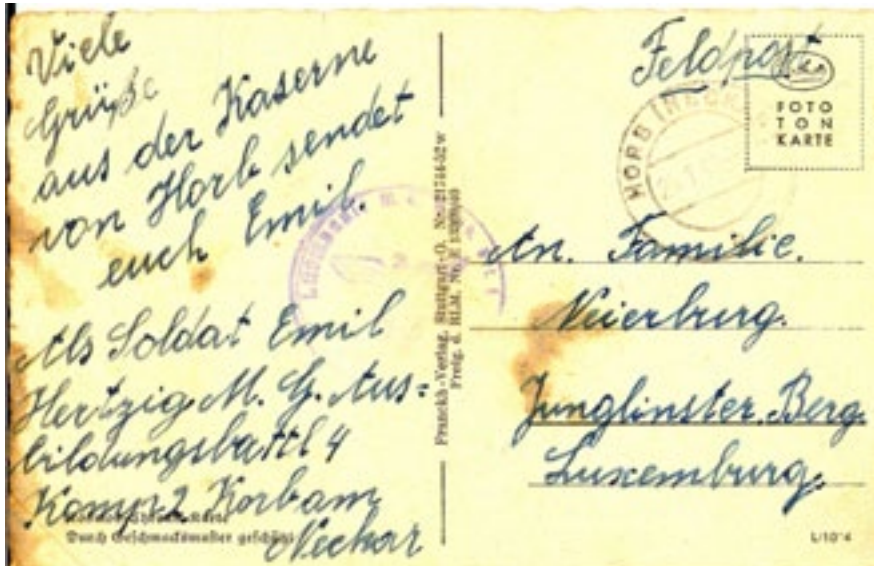 Viele
Grüße
aus der Kaserne
von Horb sendet
euch Emil.
Als Soldat Emil
Hertzig M. G. Aus=
bildungsbattl 4
Komp. 2 Horb am
Neckar
Karte
Durch Geschmacksmuster geschützt
Franckh-Verlag, Stuttgart-O.
Freig. d. RLM.
Feldpost
FOTO
TON
KARTE
HORB
An. Familie.
Neierburg.
Junglinster. Berg.
Luxemburg.
L/10*4